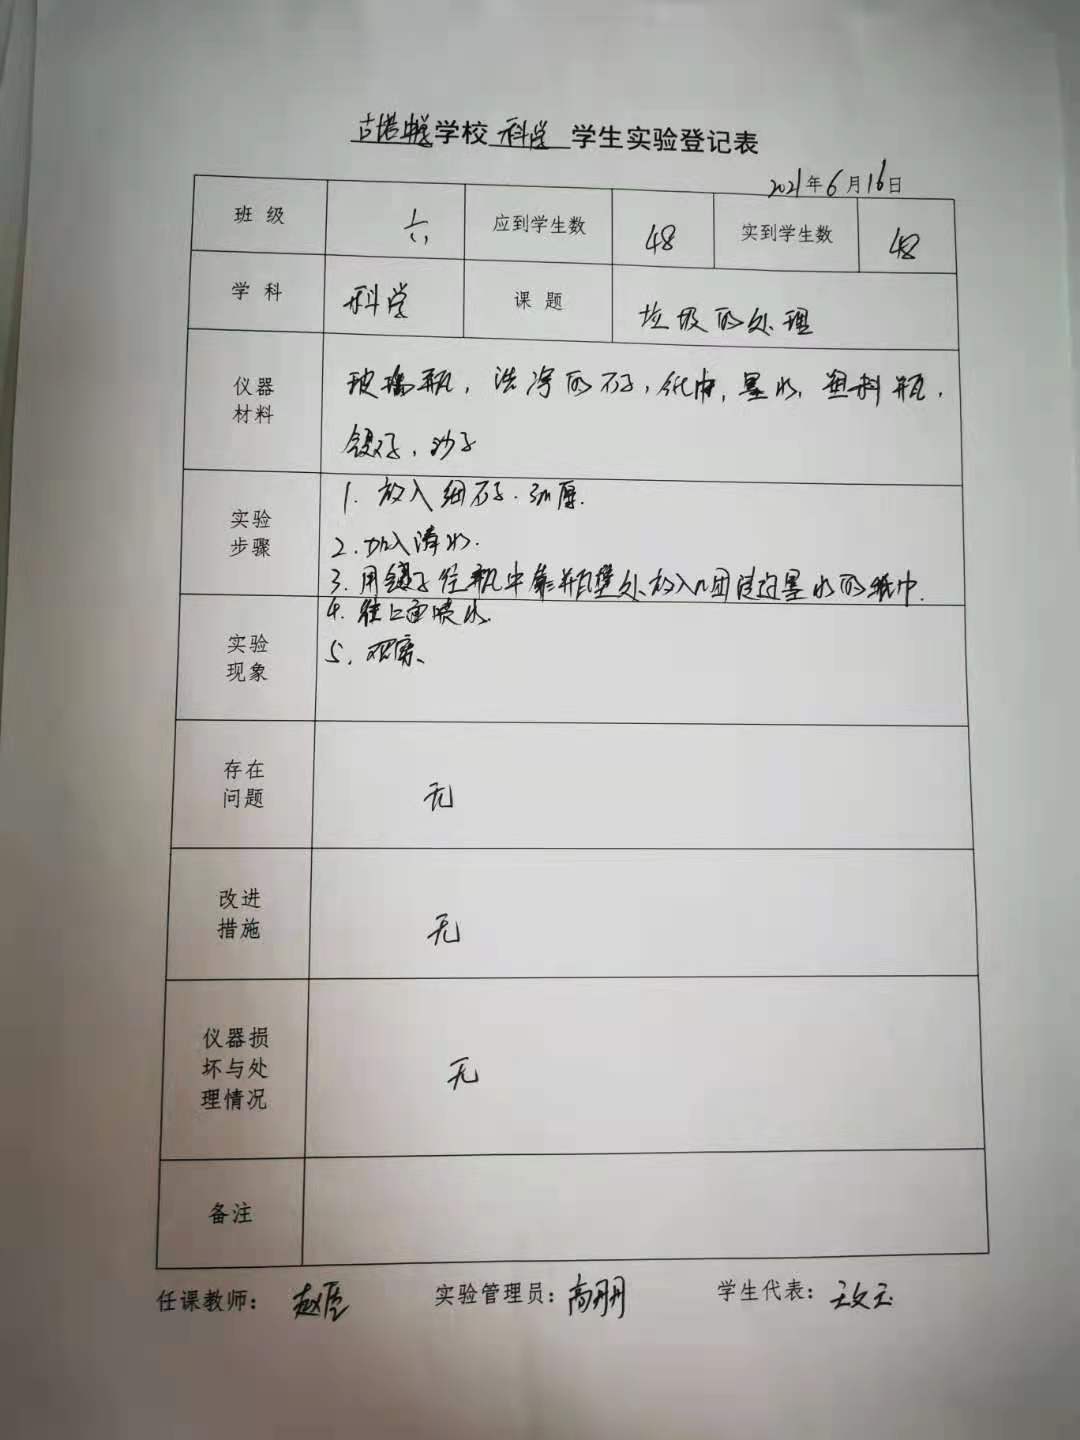 学校 科学 学生实验登记表
2021年6月16日
班级 六 应到学生数 48 实到学生数 48
学科 科学 课题 垃圾的处理
仪器材料
玻璃瓶，洗净的石子，纸巾，墨水，塑料瓶，
镊子，沙子
实验步骤
1. 放入细石子.
2. 加入清水.
3. 用镊子往瓶中靠瓶壁处放入几团浸过墨水的纸巾.
实验现象
4. 往上面喷水.
5. 观察、
存在问题
无
改进措施
无
仪器损坏与处理情况
无
备注
任课教师： 实验管理员：高丹丹 学生代表：